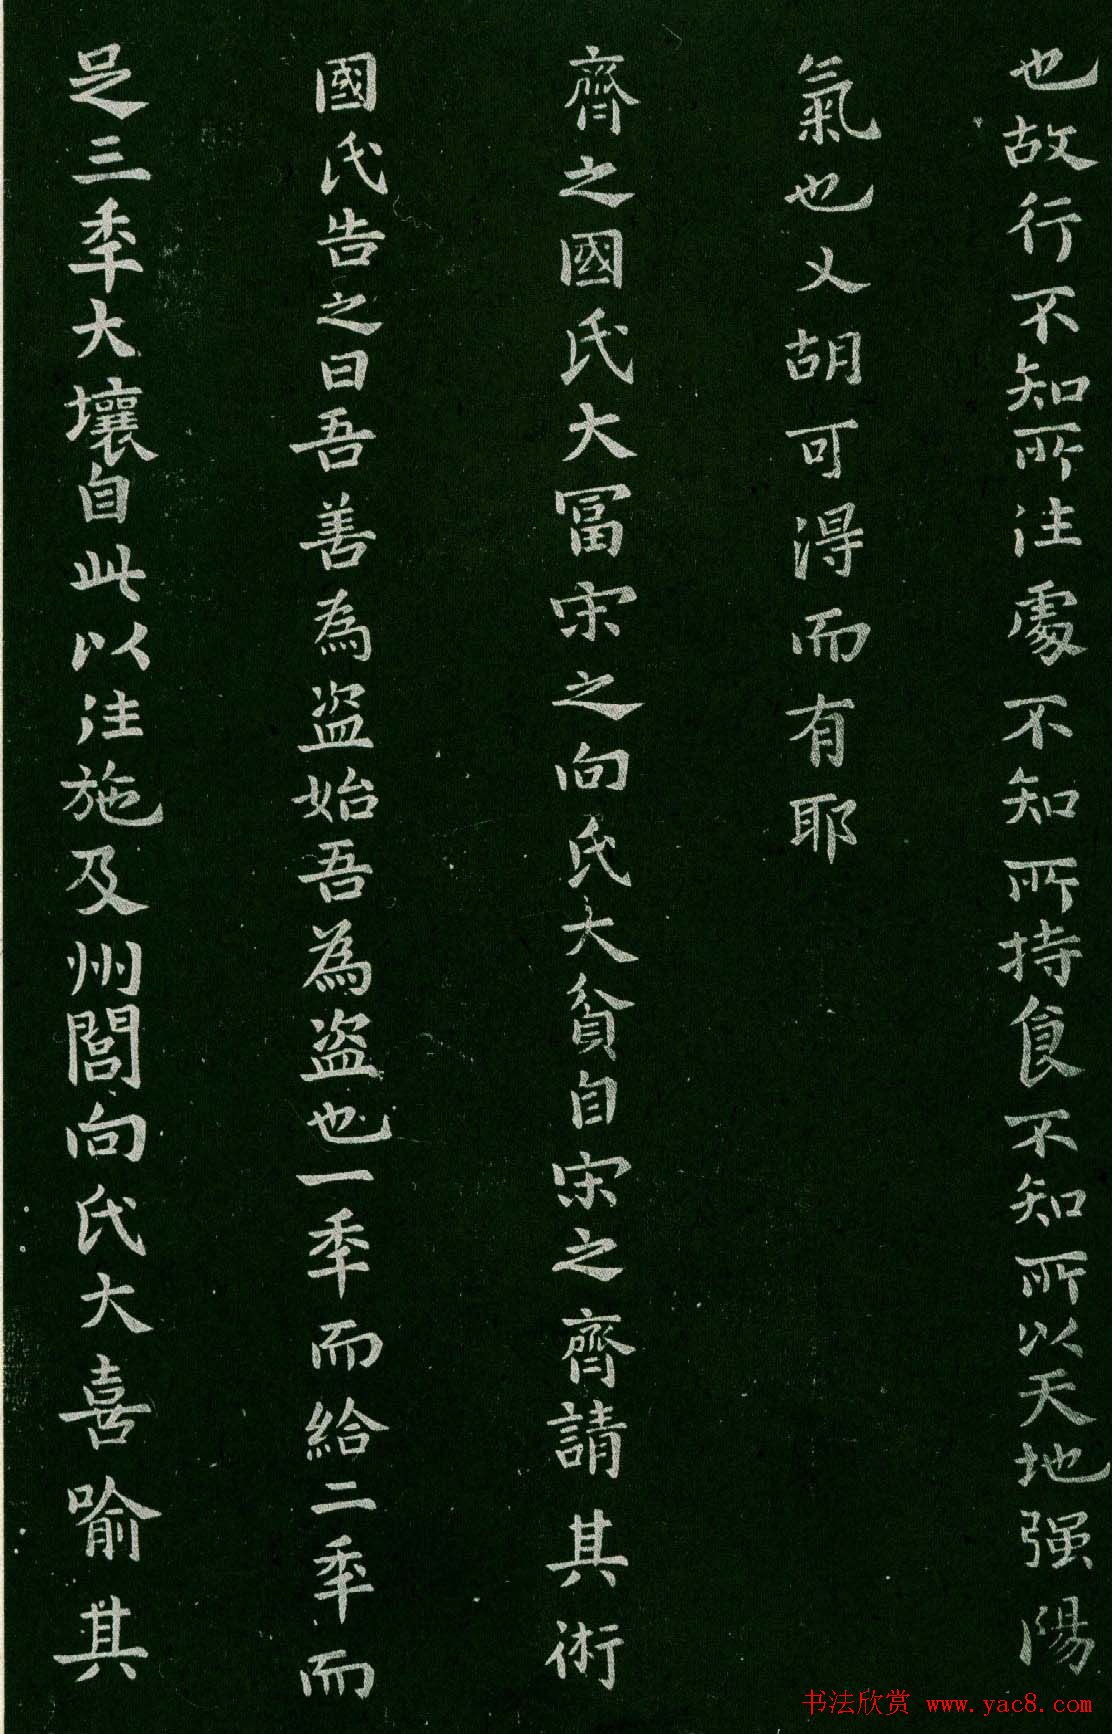 也故行不知所往處不知所持食不知所以天地强陽
氣也又胡可得而有耶
齊之國氏大冨宋之向氏大貧自宋之齊請其術
國氏告之曰吾善為盗始吾為盗也一季而給二季而
足三季大壤自此以往施及州閭向氏大喜喻其
书法欣赏 www.yac8.com